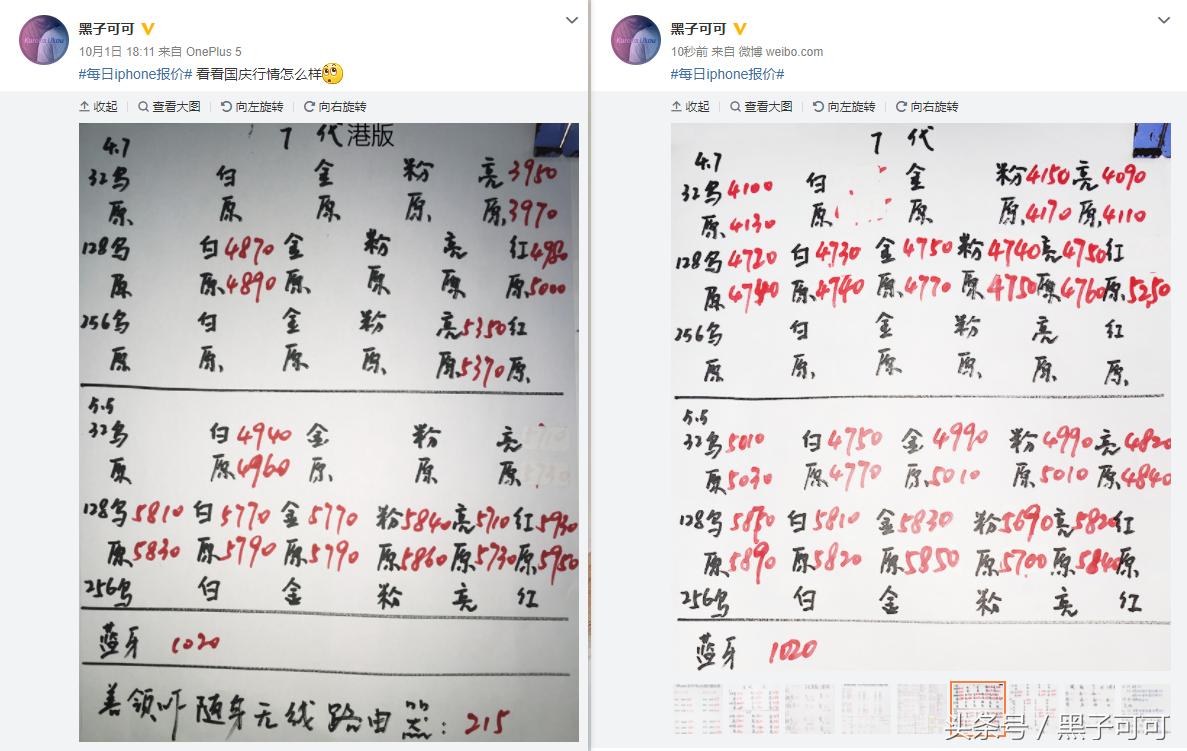 黑子可可
10月1日 18:11 来自 OnePlus 5
#每日iphone报价# 看看国庆行情怎么样
收起 查看大图 向左旋转 向右旋转
7 代港版
4.7
32乌 白 金 粉 亮3950
原 原 原 原 原3970
128乌 白4870 金 粉 亮 红4980
原 原4890 原 原 原 原5000
256乌 白 金 粉 亮5350 红
原 原 原 原 原5370 原
5.5
32乌 白4940 金 粉 亮5710
原 原4960 原 原 原5730
128乌5810 白5770 金5770 粉5840 亮5710 红5930
原5830 原5790 原5790 原5860 原5730 原5950
256乌 白 金 粉 亮 红
蓝牙 1020
善领吓随车无线路由器:215
黑子可可
10秒前 来自 微博 weibo.com
#每日iphone报价#
收起 查看大图 向左旋转 向右旋转
7 代
4.7
32乌4100 白 金 粉4150 亮4090
原4130 原 原 原4170 原4110
128乌4720 白4730 金4750 粉4740 亮4750 红
原4740 原4740 原4770 原4750 原4760 原5250
256乌 白 金 粉 亮 红
原 原 原 原 原 原
5.5
32乌5010 白4750 金4990 粉4990 亮4820
原5030 原4770 原5010 原5010 原4840
128乌5870 白5810 金5830 粉5690 亮5820 红
原5890 原5820 原5850 原5700 原5840 原
256乌 白 金 粉 亮 红
蓝牙 1020
头条号 / 黑子可可